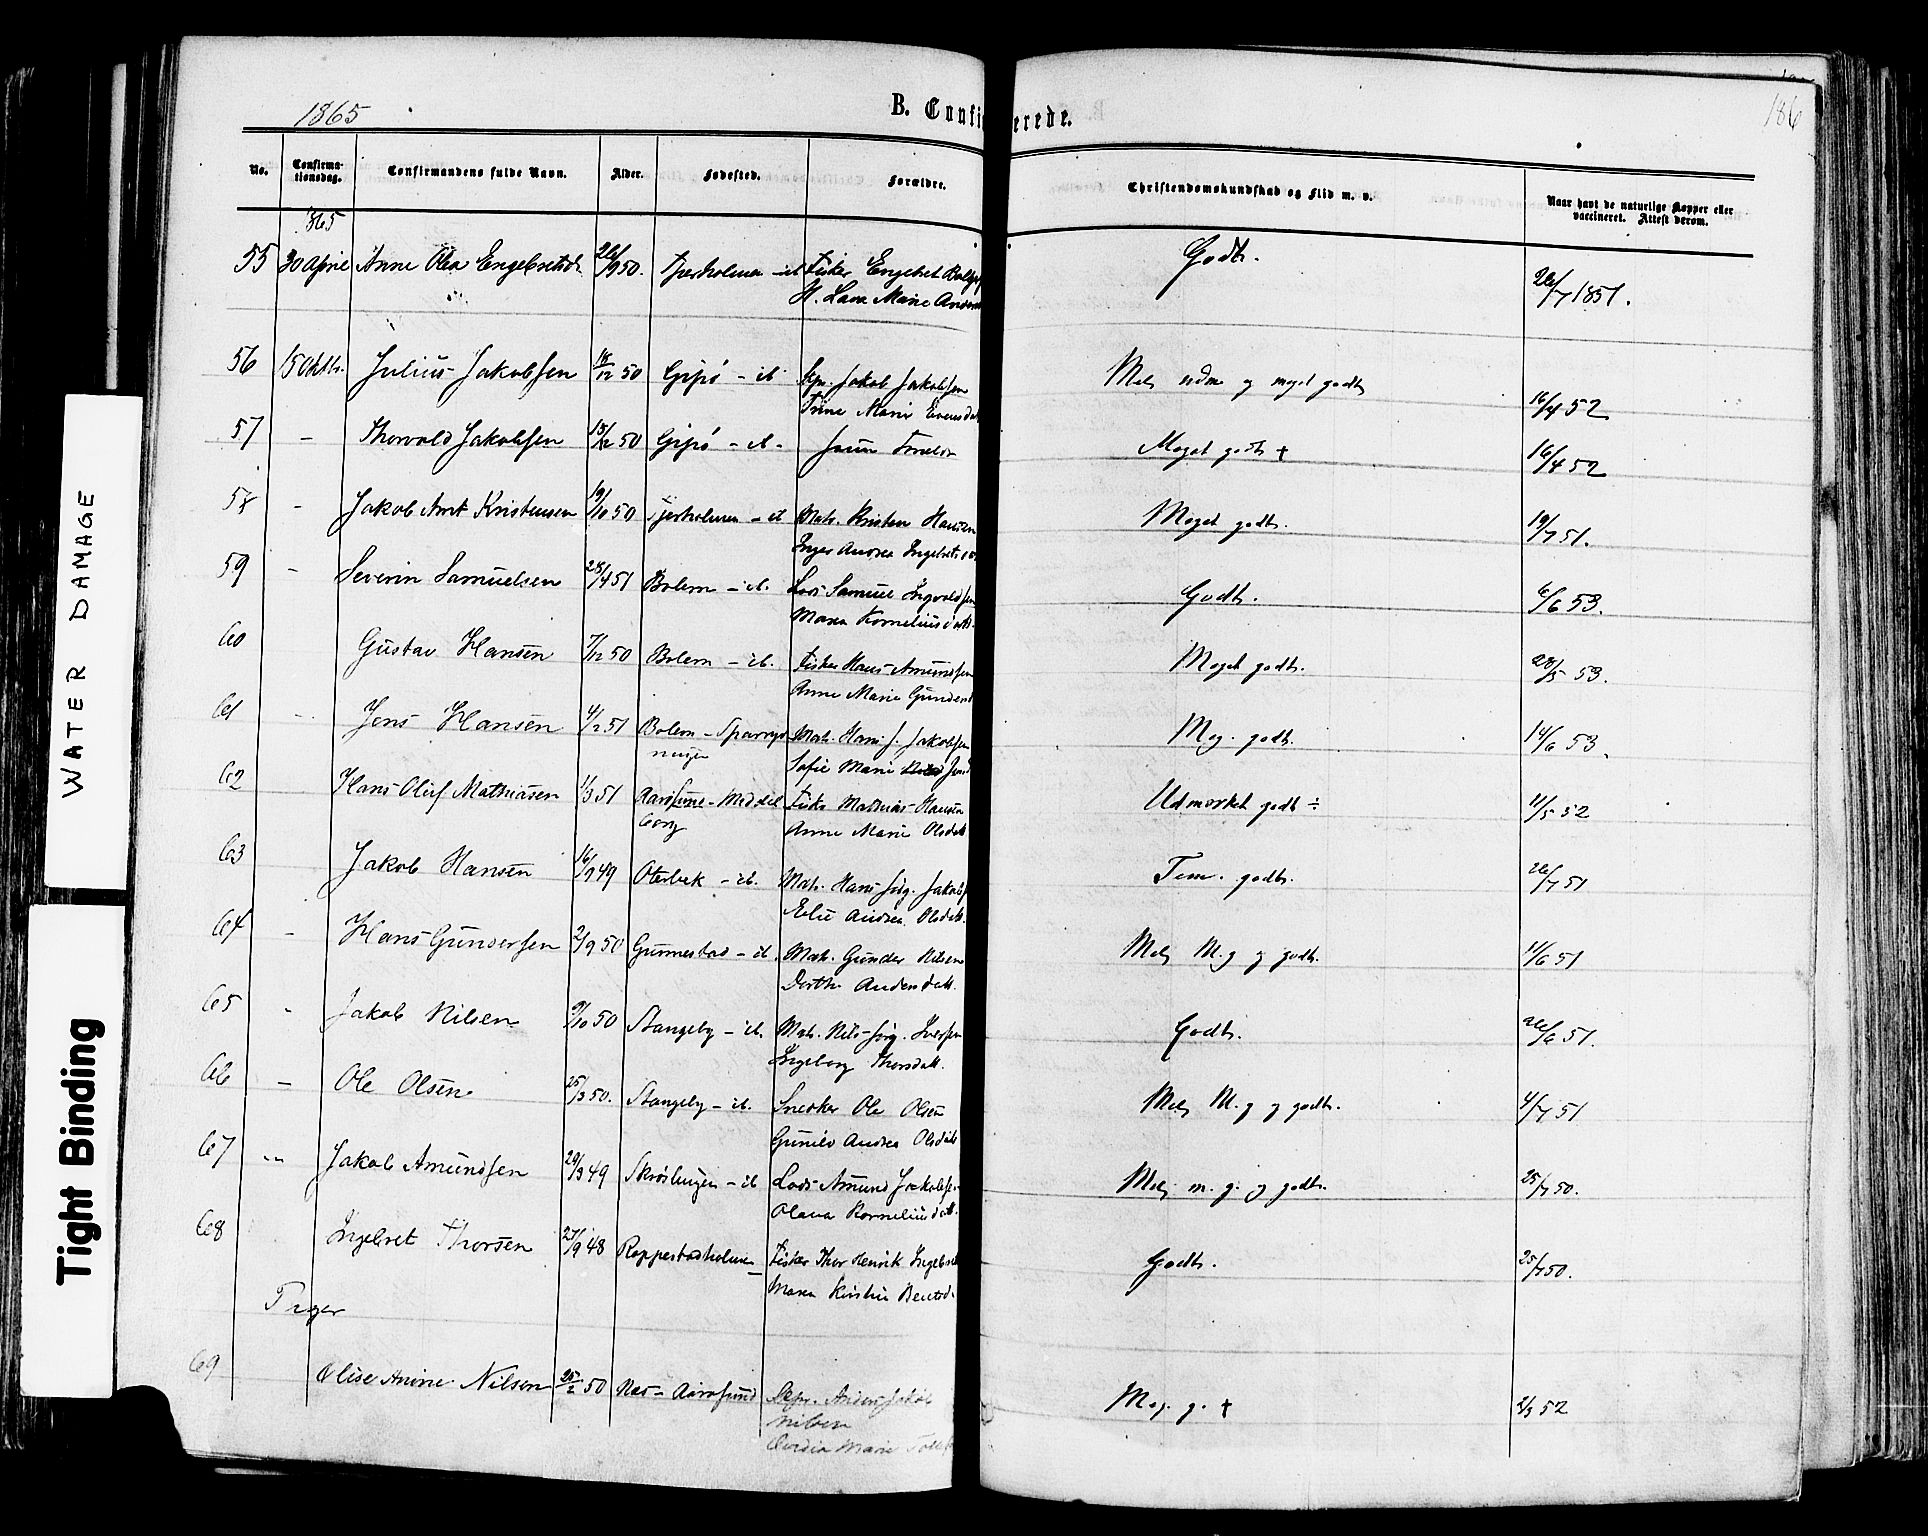 1865
B. Confi erede.
186
No. Confirma-tionsdag. Confirmandens fulde Navn. Alder. Fødested. Forældre. Christendomskundskab og Flid m. v. Naar havt de naturlige Kopper eller vaccineret. Attest derom.
1865
55 30 April Anne Olea Engebretsd. 26/9 50. Fjærholmen - ib Fisker Engebret
H. Lava Marie Anders
Godt. 26/7 1851.
56 15 Oktb. Julius Jakobsen 15/12 50 Gipø - ib Skpr. Jakob Jakobsen
Trine Marie Evensdat
Mlg udm og meget godt 16/4 52
57 - Thorvald Jakobsen 15/12 50 Gipø - ib - Samme Forældr
Meget godt + 16/4 52
58 - Jakob Arnt Kristensen 19/10 50 Fjærholmen - ib Matr. Kristen Hansen
Inger Andrea Ingebrets
Meget godt. 19/7 51.
59 - Severin Samuelsen 28/4 51 Bolærn - ib. Lods Samuel Ingvaldsen
Maren Korneliusdatt.
Godt. 6/6 53.
60 Gustav Hansen 7/12 50 Bolærn - ib. Fisker Hans Amundsen
Anne Marie Gunders
Meget godt. 28/5 53.
61 - Jens Hansen 4/2 51 Bolærn - Matr. Hans J. Jakobsen
Sofie Marie
Meg. godt. 14/6 53.
62 Hans Oluf Mathiasen 1/3 51 Aarøsund - Middel
borg
Fisker Mathias Hansen
Anne Marie Olsdatt
Udmærket godt ÷ 11/5 52
63 Jakob Hansen 16/9 49 Oterbek - ib. Matr. Hans Jørg. Jakobs
Elie Andrea Olsdatt.
Tem. godt. 26/7 51
64 - Hans Gundersen 2/9 50 Gunnestad - ib. Matr. Gunder Nilsen
Dorthe Andersdatt.
Mlg M. g og godt. 11/6 51
65 - Jakob Nilsen 9/10 50 Stangeby - ib. Matr. Nils Jørg. Iversen
Ingeborg Thorsdatt.
Godt. 26/6 51.
66 - Ole Olsen 25/3 50. Stangeby - ib. Snedker Ole Olsen
Gunild Andrea Olsdatt
Mlg M. g og godt. 4/7 51
67 - Jakob Amundsen 29/3 49 - ib Lods Amund Jakobsen
Olava Korneliusdatt.
Mlg m. g. og godt. 25/7 50.
68 Ingebret Thorsen 27/9 48 Roppestadholmen - Fisker Thor Henrik Ingebret
Maren Kirstine Bentsd.
Godt. 25/7 50.
Piger
69 Elise Anine Nilsen 25/2 50 Nes - Aarøsund Skpr. Anders Jakob
Nilsen
Marie
Meg. g. + 2/3 52
WATER DAMAGE
Tight Binding